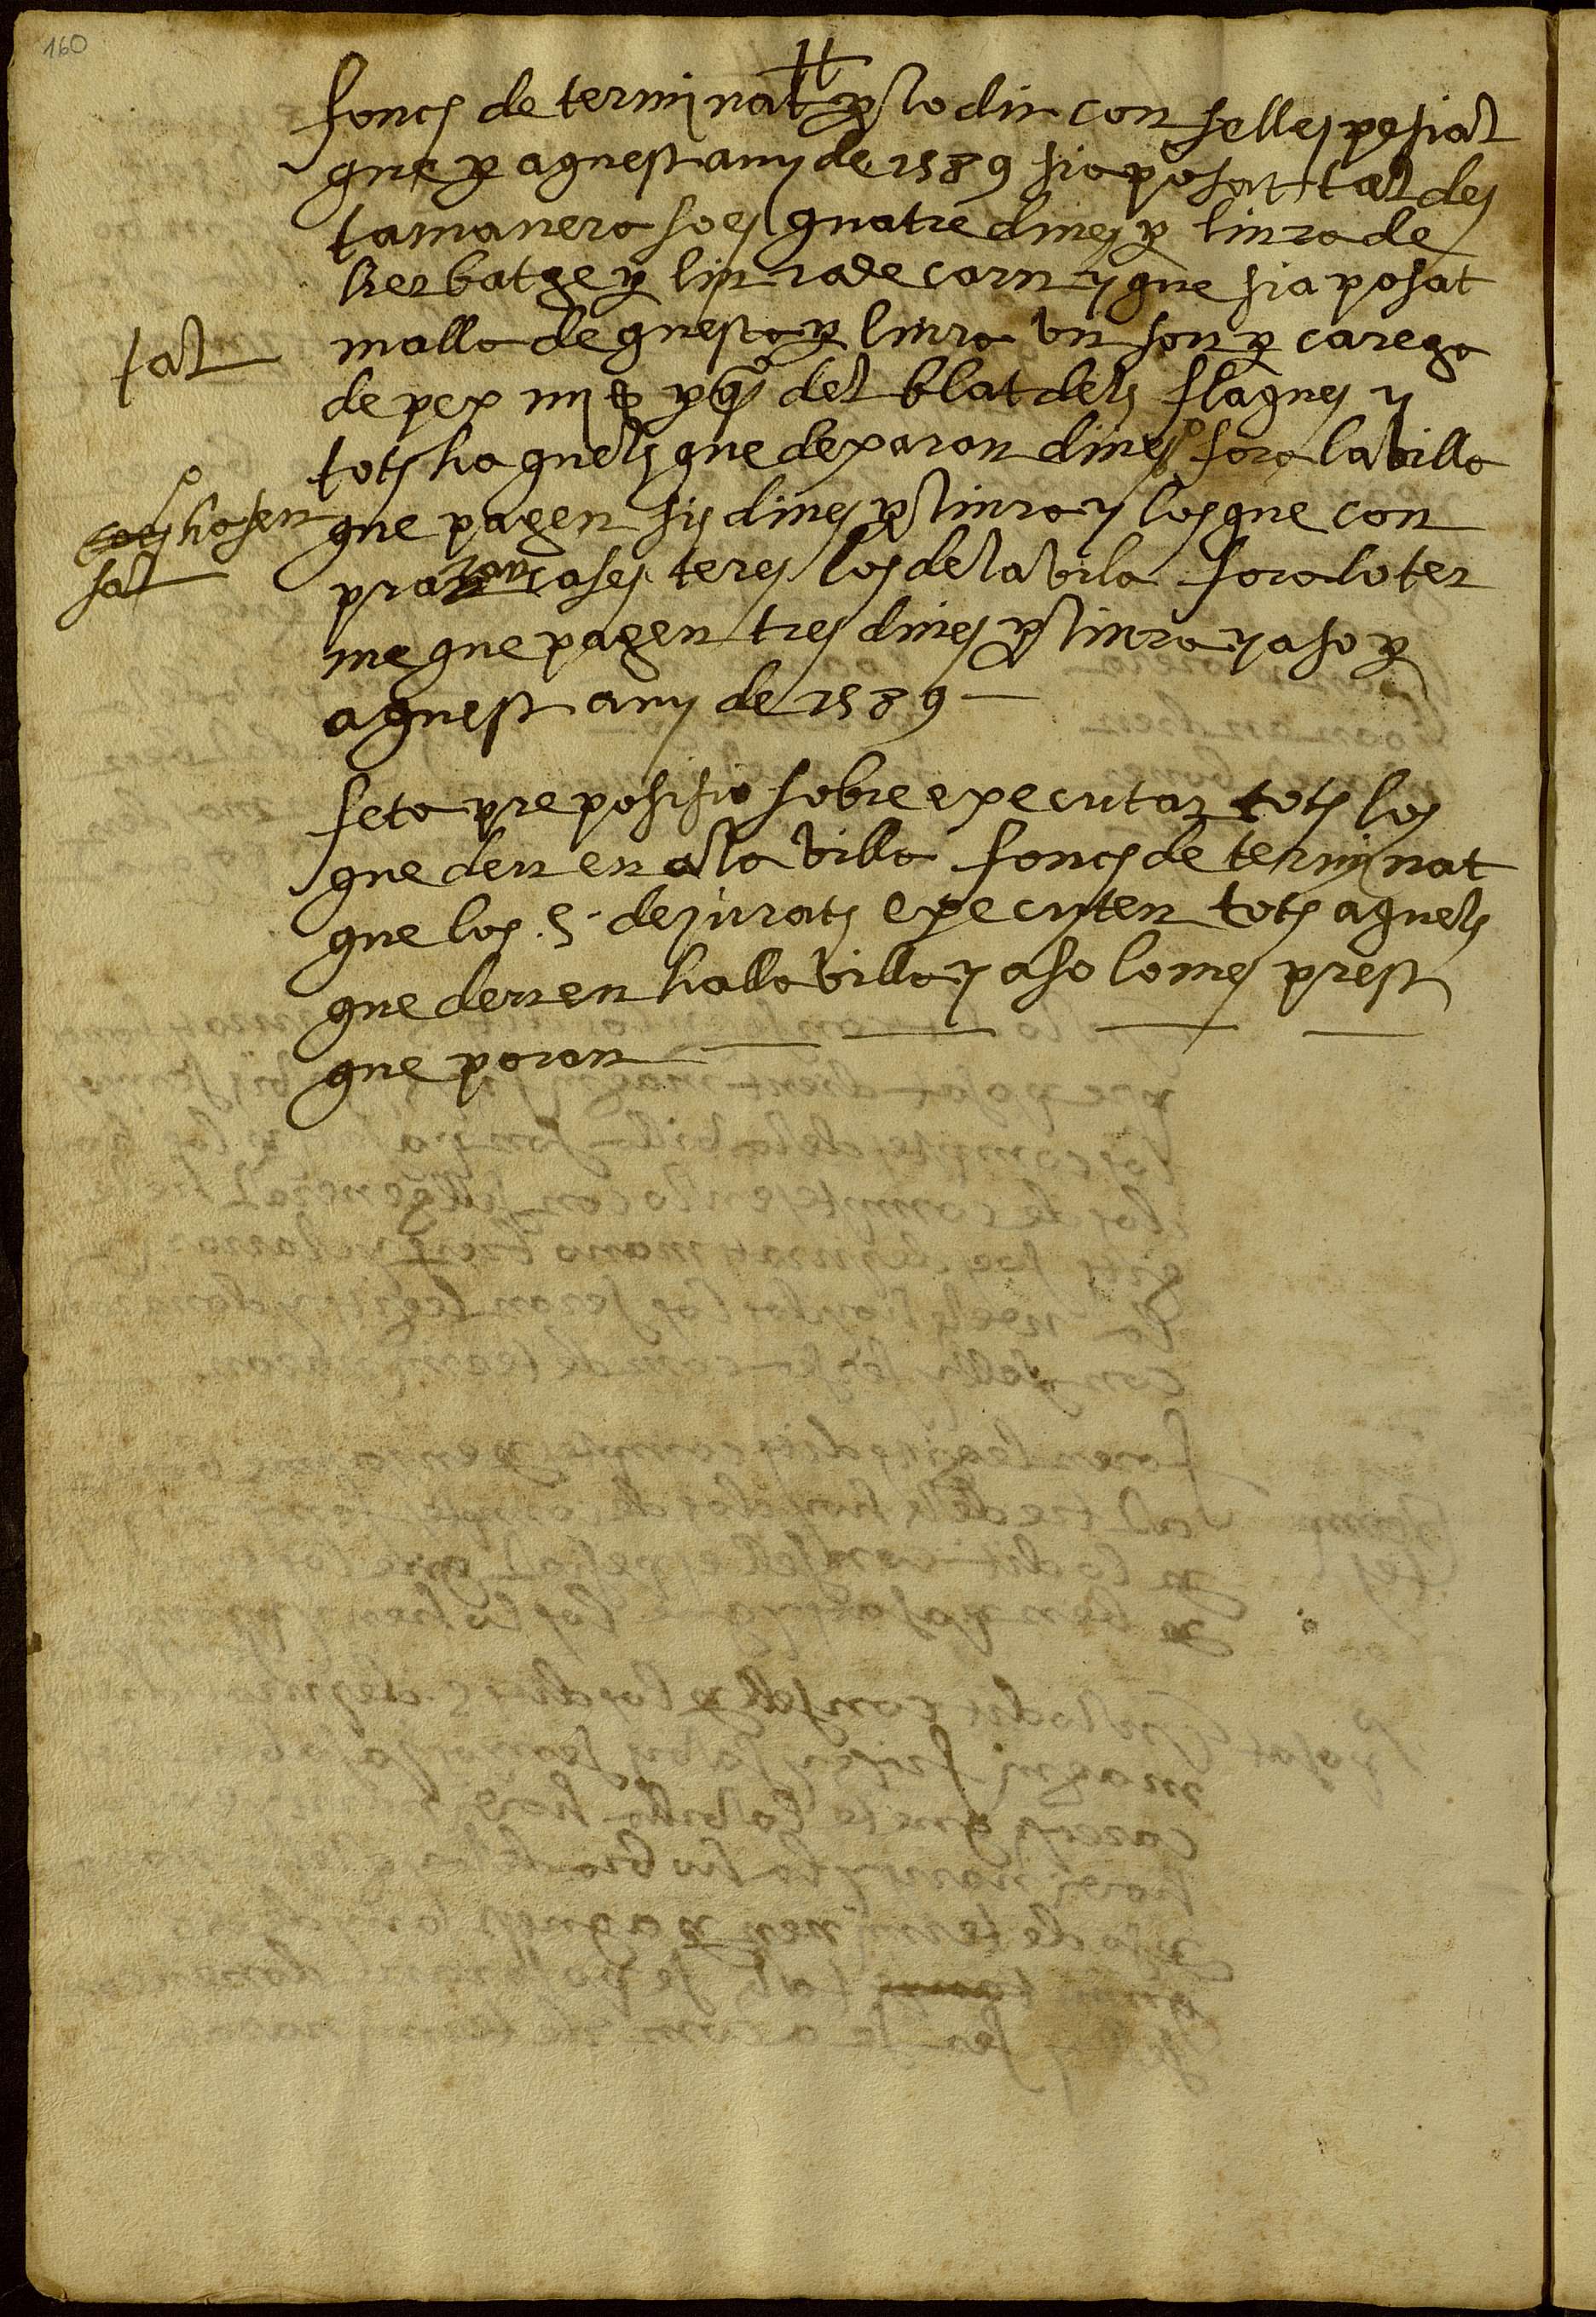 160
fonch determinat per lo dit consell espesial
que per aquest any de 1589 sia posat tal des
ta manera so es quatre dines per liura de
herbatge per liura de carn y que sia posat
tal
malla de questa per liura un sou per carega
de pex iiij del blat dels flaques y
tots ha quels que dexaran dines fora la villa
hosen
sal
que pagen sis dines per liura y los que con
prar cases teres los de la vila fora lo ter
me que pagen tres dines per liura y aso per
aquest any de 1589
feta preposisio sobre executar tots los
que deuen a la villa fonch determinat
que los .S. de jurats executen tots aquels
que deuen halla villa y aso lo mes prest
que poran